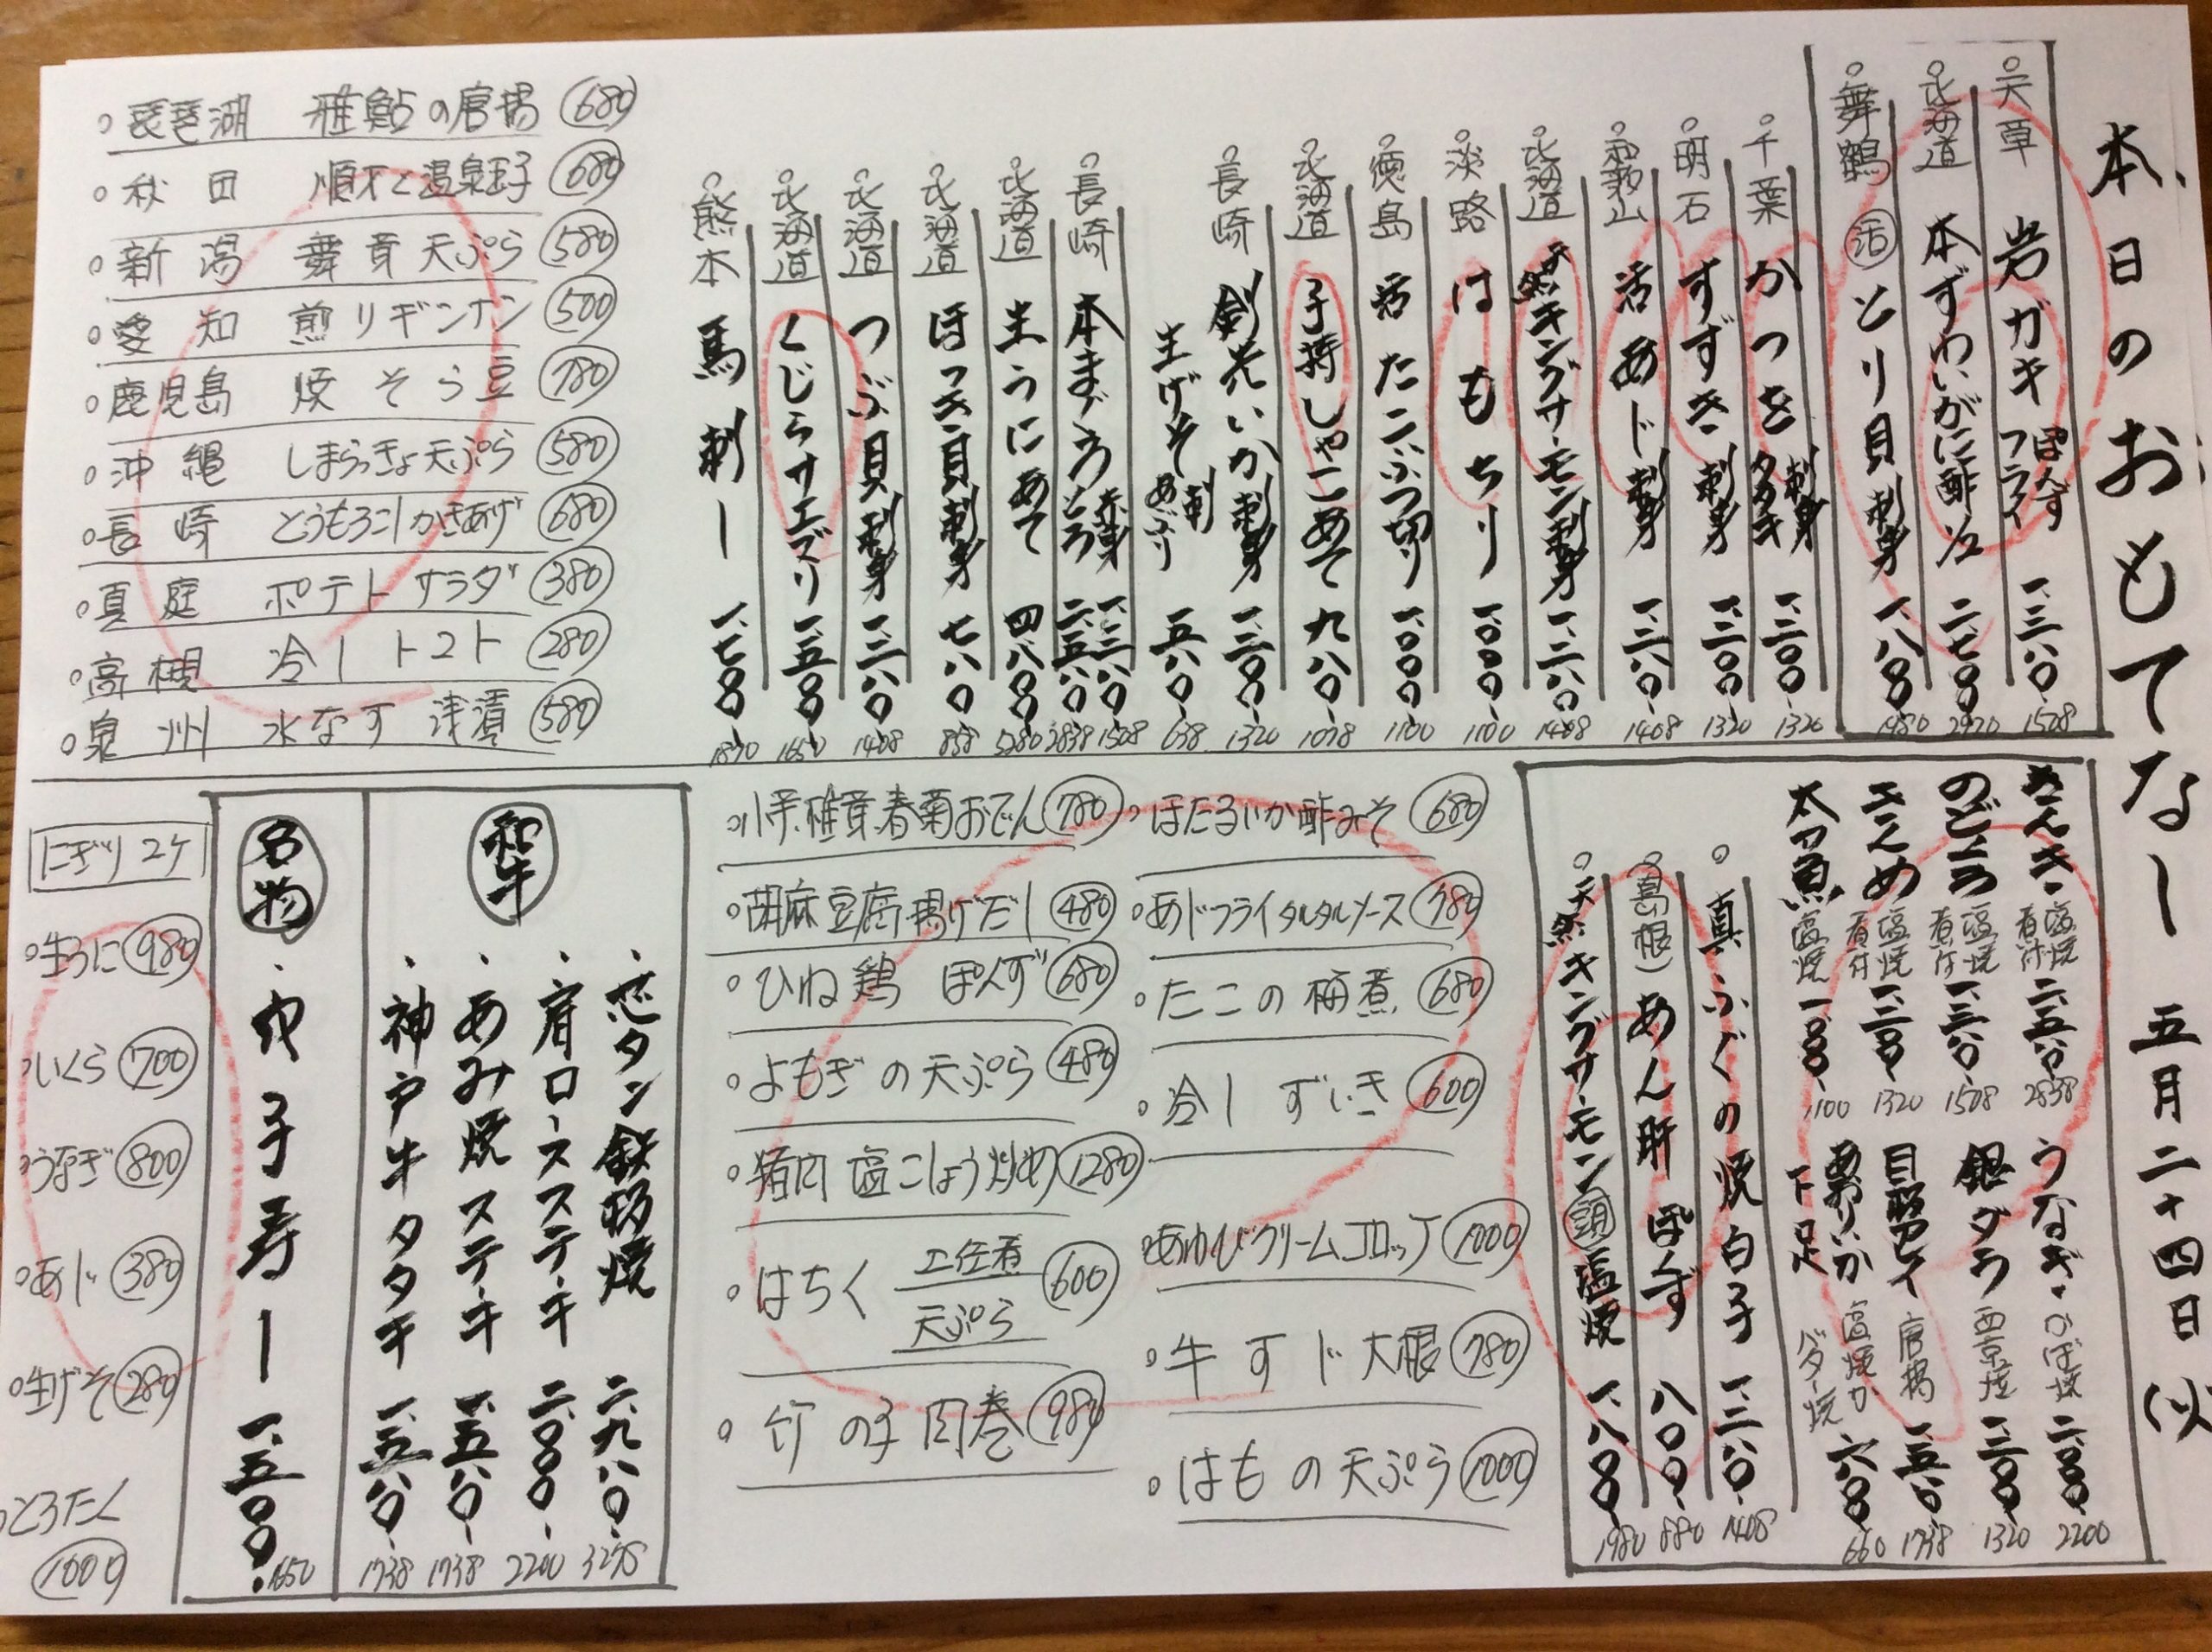 本日のおもてなし 五月二十四日(火)
天草 岩ガキ ぽんず フライ 一、三八〇 1508
北海道 本ずわいがに酢 1/2 二、七〇〇 2970
舞鶴 活 とり貝 刺身 一、八〇〇 1980
千葉 かつを 刺身 タタキ 一、二〇〇 1320
明石 すずき 刺身 一、二〇〇 1320
和歌山 活あじ 刺身 一、二八〇 1408
北海道 天然キングサーモン刺身 一、二八〇 1408
淡路 はもちり 一、〇〇〇 1100
徳島 活たこぶつ切り 一、〇〇〇 1100
北海道 子持しゃこあて 九八〇 1078
長崎 剣先いか刺身 一、二〇〇 1320
生げそ 刺 あぶり 五八〇 638
長崎 本まぐろ 赤身 一、三八〇 1508 とろ 二、五八〇 2838
北海道 生うにあて 四、八〇〇 5280
北海道 ほっき貝刺身 七八〇 858
北海道 つぶ貝刺身 一、二八〇 1408
北海道 くじらサエズリ 一、五〇〇 1650
熊本 馬刺し 一、七〇〇 1870
琵琶湖 稚鮎の唐揚 680
秋田 順才と温泉玉子 680
新潟 舞茸天ぷら 580
愛知 煎りギンナン 500
鹿児島 焼そら豆 780
沖縄 しまらっきょ天ぷら 580
長崎 とうもろこしかきあげ 680
真庭 ポテトサラダ 380
高槻 冷しトマト 280
泉州 水なす 浅漬 580
きんき 塩焼 煮付 二、五八〇 2838
のどぐろ 塩焼 煮付 一、三八〇 1508
きんめ 塩焼 煮付 一、二〇〇 1320
太刀魚 塩焼 一、〇〇〇 1100
うなぎ かば焼 二、〇〇〇 2200
銀ダラ 西京焼 一、二〇〇 1320
目板カレイ 唐揚 一、五八〇 1738
あおりいか下足 塩焼か バター焼 六〇〇 660
真ふぐの焼白子 一、二八〇 1408
(島根) あん肝ぽんず 八〇〇 880
天然キングサーモン 塩焼 一、八〇〇 1980
ほたるいか酢みそ 680
あじフライタルタルソース 780
たこの梅煮 680
冷しずいき 600
あわびクリームコロッケ 1000
牛すじ大根 780
はもの天ぷら 1000
小芋、椎茸、春菊おでん 780
胡麻豆腐揚げだし 480
ひね鶏 ぽんず 680
よもぎの天ぷら 480
猪肉 塩こしょう炒め 1280
はちく 土佐煮 天ぷら 600
竹の子肉巻 980
和牛
芯タン鉄板焼 二、九八〇 3278
肩ロースステーキ 二、〇〇〇 2200
あみ焼ステーキ 一、五八〇 1738
神戸牛タタキ 一、五八〇 1738
名物
巾子寿し 一、五〇〇 1650
にぎり2ケ
生うに 980
いくら 700
うなぎ 800
あじ 380
生げそ 280
とろたく 1000